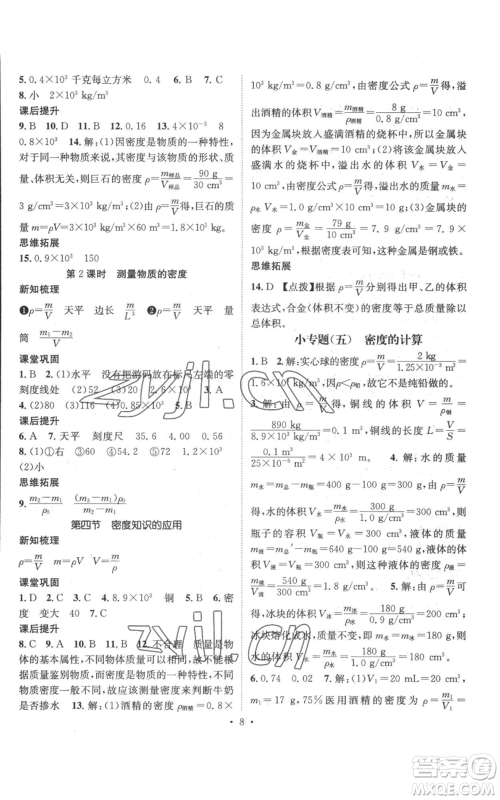 5. 0.4×10³ 千克每立方米 0.4 6. B 7. C
8. 小 2×10³ kg/m³
课后提升
9. B 10. D 11. B 12. B 13. 4×10⁻³ 8
0.8×10³ 14. 解:(1)因为密度是物质的一种特性,
对于同一种物质来说,密度与该物质的形状、质
量、体积无关,则巨石的密度 ρ=m样品/V样品=90 g/30 cm³=
3 g/cm³=3×10³ kg/m³ (2)巨石的质量
m=ρV=3×10³ kg/m³×20 m³=6×10⁴ kg
思维拓展
15. 0.9×10³ 150
第 2 课时 测量物质的密度
新知梳理
❶ρ=m/V 天平 m/L³ 天平 m/V ❷ρ=m/V 量
筒 (m₁−m₂)/V
课堂巩固
1. B 2. (1)水平 没有把游码放在标尺左端的零
刻度线处 (2)52 (3)20 (4)2.6×10³ 3. A
4. (2)80 (3)110 (4)116 0.9
课后提升
6. A 7. 天平 刻度尺 35.6 4.00 0.56
8. (1)① (2)右 ③54 ④60 0.9×10³
(2)小
思维拓展
9. (m₂−m₁)/ρ₀ (m₃−m₁)ρ₀/(m₂−m₁)
第四节 密度知识的应用
新知梳理
ρ=m/V ρV m/ρ
课堂巩固
1. C 2. D 3. A 4. C 5. 8.9×10³ 铜 6. B
密度 变大 40 7. C
课后提升
8. C 9. A 10. B 11. B 12. 不合理 质量是物
体的基本属性,不同物体质量可能相同,故不能根
据质量鉴别物质;密度是物质的一种特性,不同物
质密度一般不同,故可测量密度来判断牛奶
是否掺水 13. 解:(1)酒精的密度 ρ=0.8×
10³ kg/m³=0.8 g/cm³,根据密度公式 ρ=m/V得,
溢出酒精的体积 V酒精=m酒精/ρ酒精=8 g/0.8 g/cm³=
10 cm³ (2)因为将金属块放入盛满酒精的烧杯
中,所以金属块的体积 V金=V酒精=10 cm³,将金
属块放入盛满水的烧杯中,溢出水的体积 V水=
V金=10 cm³,根据密度公式 ρ=m/V得,m水=
ρ水 V水=1 g/cm³×10 cm³=10 g (3)金属块的密
度 ρ金=m金/V金=79 g/10 cm³=7.9 g/cm³=7.9×
10³ kg/m³,根据密度表可知,这种金属是钢或铁。
思维拓展
14. D 【点拨】根据 ρ=m/V分别得出甲、乙的体积在
混合过程中(体积不变)的密度是总质量除以
总体积。
小专题(五) 密度的计算
1. B 2. 解:实心球的密度 ρ=m/V=
1.6×10³ kg/m³,因为 ρ<ρ铅,所以它不是纯铅做的
3. 解:根据 ρ=m/V得,铜线的体积 V=m/ρ铜=
890 kg/8.9×10³ kg/m³=0.1 m³
0.1 m³/25×10⁻⁶ m²=4 000 m 4. 解:(1)瓶子装满水
时,水的质量 m水=400 g−100 g=300 g,由 ρ=
m/V得,水的体积 V水=m水/ρ水=300 g/1 g/cm³=300 cm³,则
瓶子的容积 V=V水=300 cm³ (2)液体的质量
m液=640 g−100 g=540 g,则液体的密度 ρ液=
m液/V液=540 g/300 cm³=1.8 g/cm³ 5. 解:(1)根据 ρ=
m/V得,冰块的体积 V冰=m冰/ρ冰=180 g/0.9 g/cm³=200 cm³
冰块熔化成水,质量不变,则水的质量 m水=
180 g,水的体积 V水=m水/ρ水=180 g/1 g/cm³=180 cm³
6. 0.74 22.2 7. 解:(1)V₁=20 mL=20 cm³,
m₁=17 g,75%医用酒精的密度 ρ=m₁/V₁=
• 8 •
zyjl.cn
zyjl.cn
作业精灵